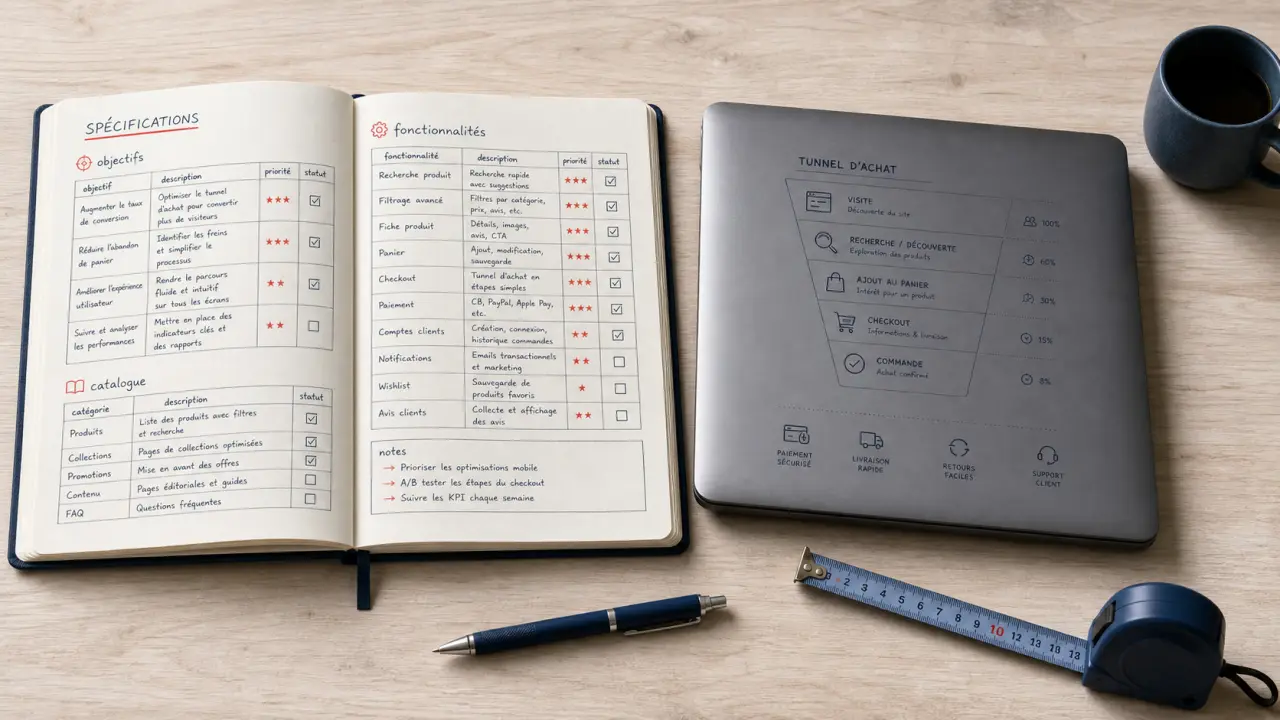 SPÉCIFICATIONS
objectifs
objectif description priorité statut
Augmenter le taux
de conversion
Optimiser le tunnel
d'achat pour convertir
plus de visiteurs
★★★ ☑
Réduire l'abandon
de panier
Identifier les freins
et simplifier le
processus
★★★ ☑
Améliorer l'expérience
utilisateur
Rendre le parcours
fluide et intuitif
sur tous les écrans
★★ ☑
Suivre et analyser
les performances
Mettre en place des
indicateurs clés et
des rapports
★★ ☐
catalogue
catégorie description statut
Produits
Liste des produits avec filtres
et recherche
☑
Collections Pages de collections optimisées ☑
Promotions Mise en avant des offres ☑
Contenu Pages éditoriales et guides ☐
FAQ Questions fréquentes ☐
fonctionnalités
fonctionnalité description priorité statut
Recherche produit
Recherche rapide
avec suggestions
★★★ ☑
Filtrage avancé
Filtres par catégorie,
prix, avis, etc.
★★★ ☑
Fiche produit
Détails, images,
avis, CTA
★★★ ☑
Panier
Ajout, modification,
sauvegarde
★★★ ☑
Checkout
Tunnel d'achat en
étapes simples
★★★ ☑
Paiement
CB, PayPal, Apple Pay,
etc.
★★★ ☑
Comptes clients
Création, connexion,
historique commandes
★★ ☑
Notifications
Emails transactionnels
et marketing
★★ ☐
Wishlist
Sauvegarde de
produits favoris
★ ☐
Avis clients
Collecte et affichage
des avis
★★ ☐
notes
→ Prioriser les optimisations mobile
→ A/B tester les étapes du checkout
→ Suivre les KPI chaque semaine
TUNNEL D'ACHAT
VISITE
Découverte du site
100%
RECHERCHE / DÉCOUVERTE
Exploration des produits
60%
AJOUT AU PANIER
Intérêt pour un produit
30%
CHECKOUT
Informations & livraison
15%
COMMANDE
Achat confirmé
8%
PAIEMENT
SÉCURISÉ
LIVRAISON
RAPIDE
RETOURS
FACILES
SUPPORT
CLIENT
2 3 4 5 6 7 8 9 10 12 13 18 13